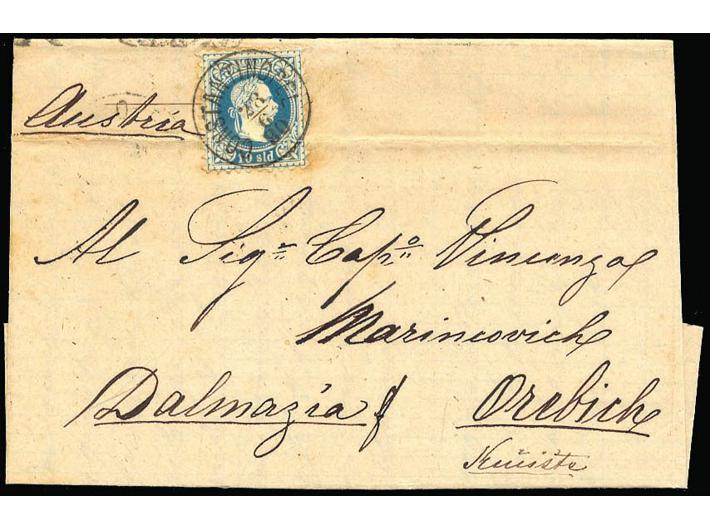 Austria
CONSTANTINOPEL
10 sld
Al Sig.r Cap.o Vincenzo
Marincovich
Dalmazia Orebich